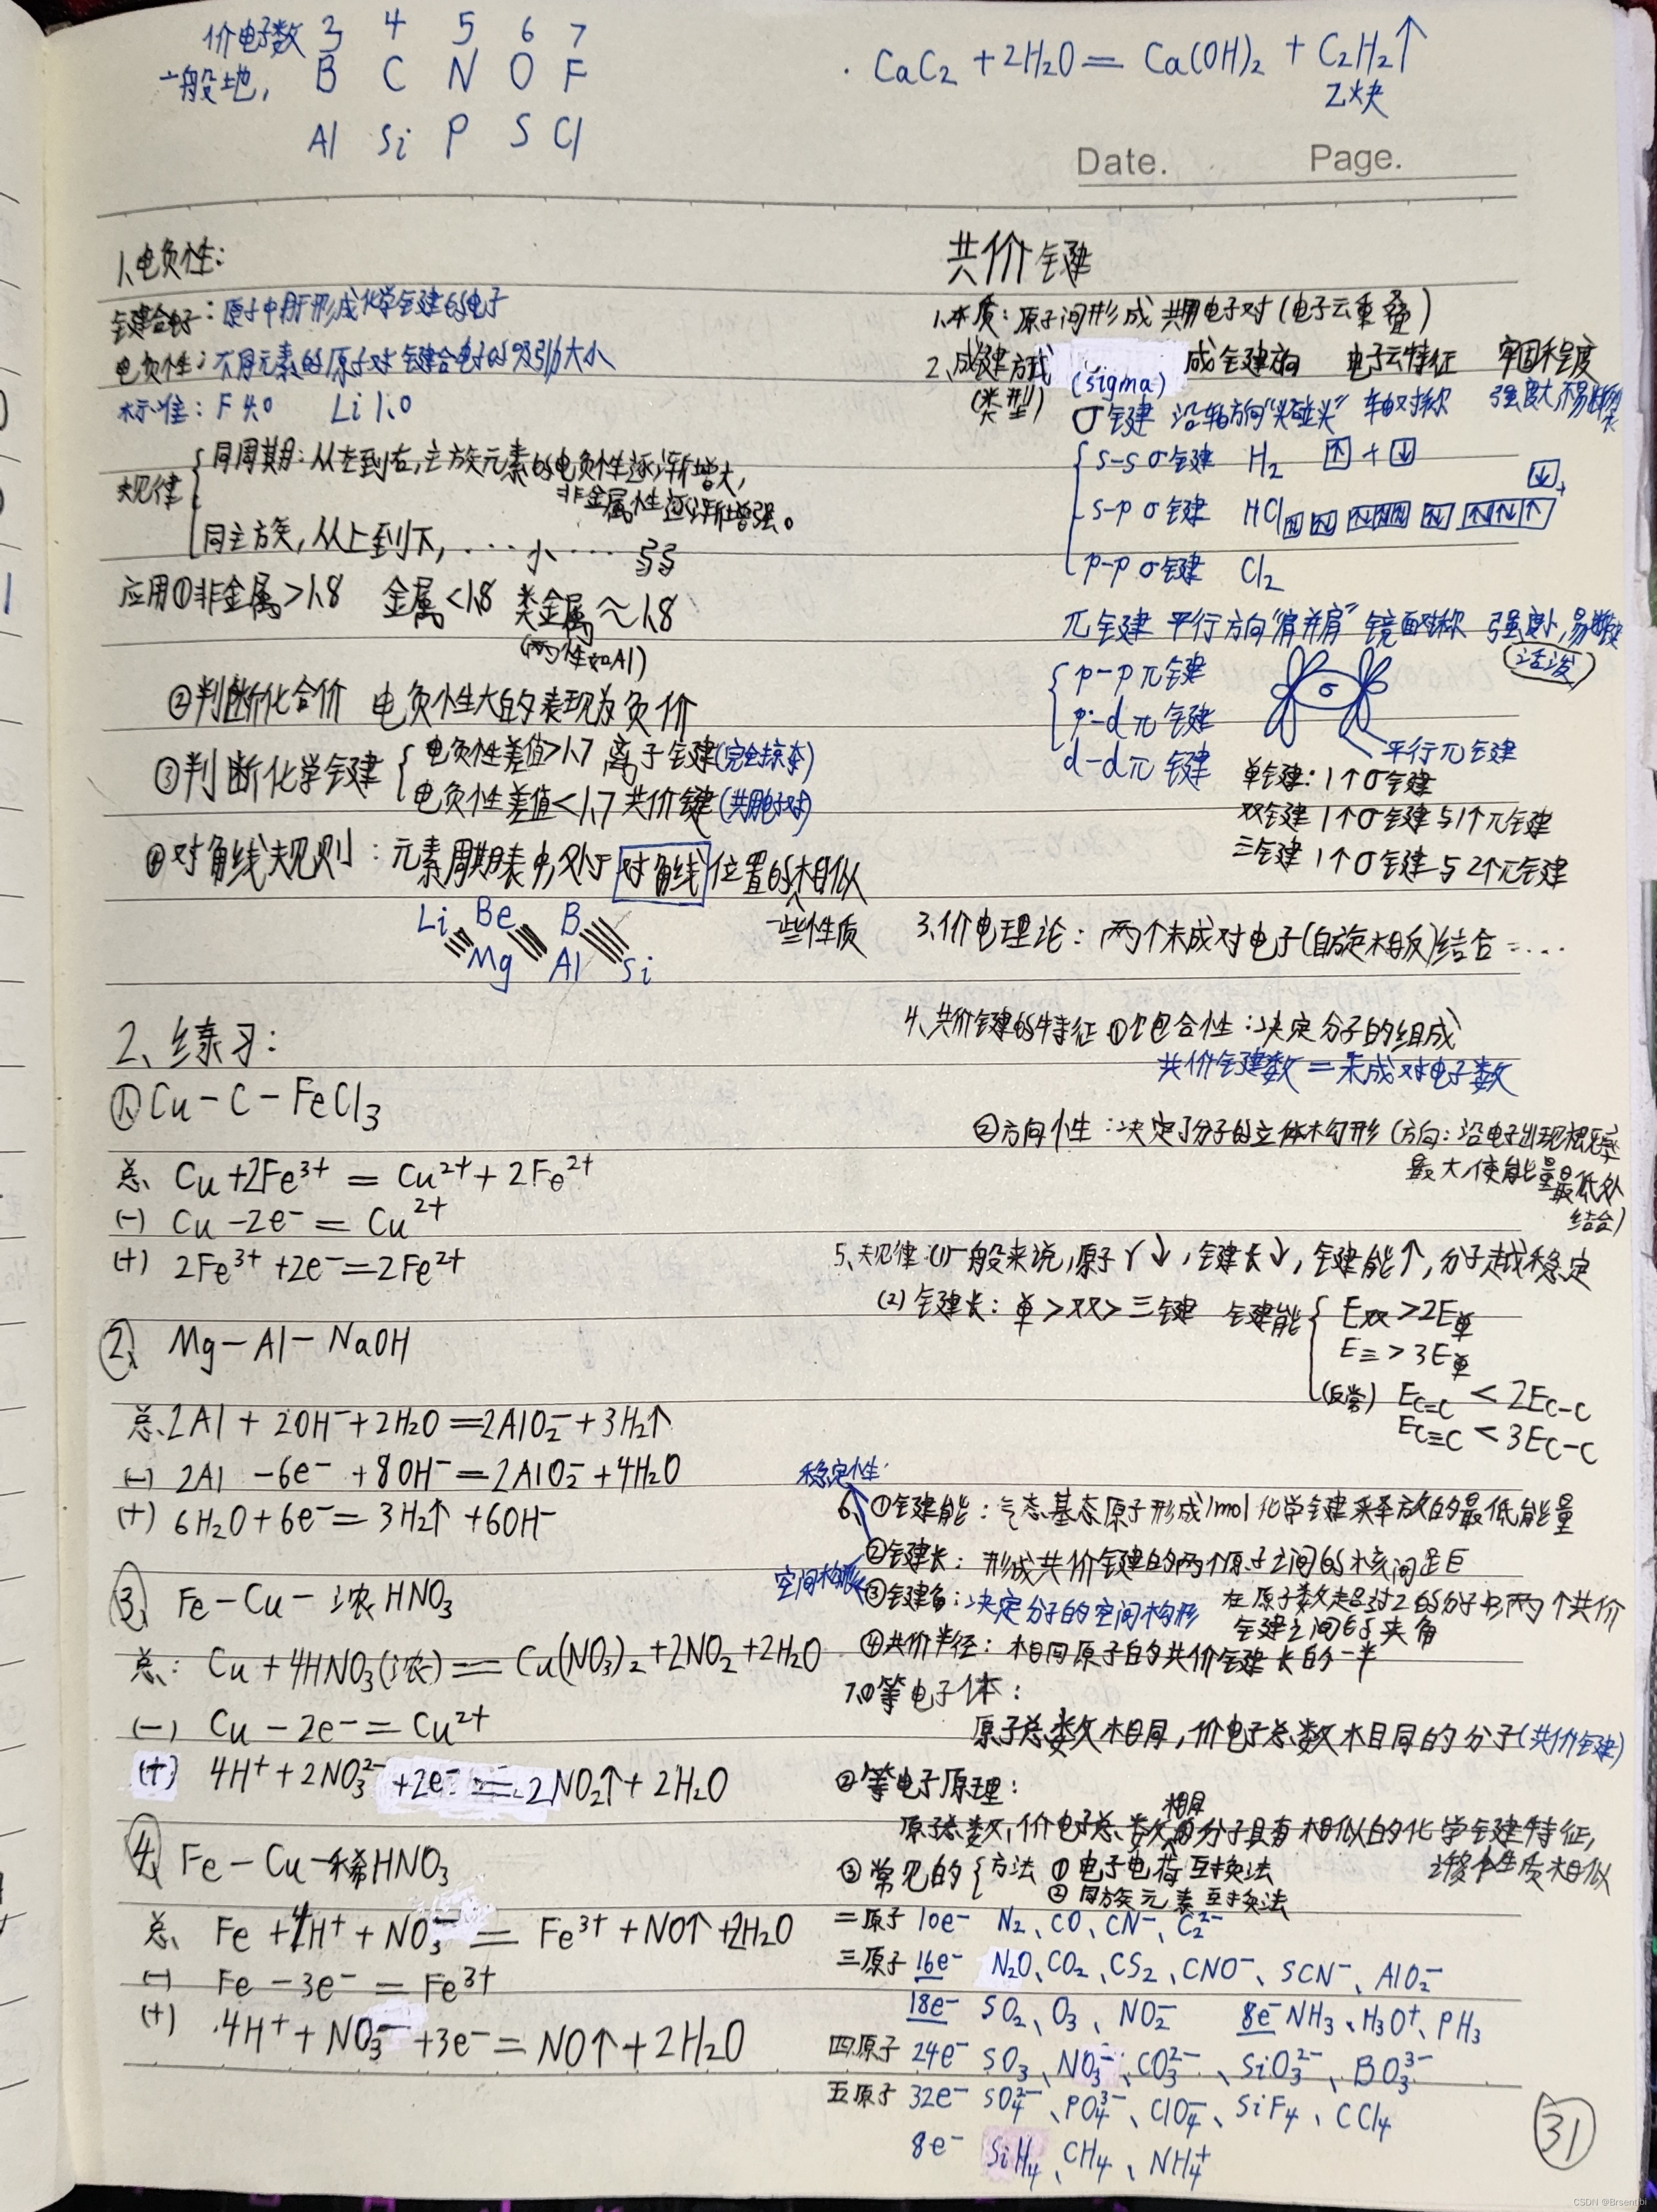 价电子数 3 4 5 6 7
一般地, B C N O F
Al Si P S Cl
· CaC₂ + 2H₂O = Ca(OH)₂ + C₂H₂↑
乙炔
Date. Page.
1、电负性:
键合电子: 原子中用于形成化学键的电子
电负性: 不同元素的原子对键合电子的吸引力大小
标准: F 4.0 Li 1.0
规律
同周期: 从左到右, 主族元素的电负性逐渐增大,
非金属性逐渐增强。
同主族, 从上到下, ···· 小 ···· 弱
应用①非金属>1.8 金属<1.8 类金属≈1.8
(两性如Al)
②判断化合价 电负性大的表现为负价
③判断化学键
电负性差值>1.7 离子键(完全掠夺)
电负性差值<1.7 共价键(共用电子对)
④对角线规则: 元素周期表中处于对角线位置的相似
一些性质
Li Be B
Mg Al Si
2、练习:
①、Cu-C-FeCl₃
总、 Cu+2Fe³⁺ = Cu²⁺+2Fe²⁺
(-) Cu-2e⁻ = Cu²⁺
(+) 2Fe³⁺+2e⁻=2Fe²⁺
②、 Mg-Al-NaOH
总、2Al + 2OH⁻+2H₂O=2AlO₂⁻+3H₂↑
(-) 2Al -6e⁻ +8OH⁻=2AlO₂⁻+4H₂O
(+) 6H₂O+6e⁻=3H₂↑ +6OH⁻
③、 Fe-Cu-浓HNO₃
总: Cu+4HNO₃(浓)=Cu(NO₃)₂+2NO₂+2H₂O
(-) Cu-2e⁻=Cu²⁺
(+) 4H⁺+2NO₃²⁻+2e⁻=2NO₂↑+2H₂O
④、 Fe-Cu-稀HNO₃
总、 Fe+4H⁺+NO₃⁻=Fe³⁺+NO↑+2H₂O
(-) Fe-3e⁻=Fe³⁺
(+) 4H⁺+NO₃⁻+3e⁻=NO↑+2H₂O
共价键
1、本质: 原子间形成共用电子对(电子云重叠)
2、成键方式 成键方向 电子云特征 牢固程度
(类型) (sigma)
σ键 沿轴方向"头碰头" 轴对称 强度大, 不易断裂
s-s σ键 H₂ ↑ + ↓
s-p σ键 HCl
p-p σ键 Cl₂
π键 平行方向"肩并肩" 镜面对称 强度小, 易断裂
(活泼)
p-p π键
p-d π键
d-d π键
σ
平行π键
单键: 1个σ键
双键 1个σ键与1个π键
三键 1个σ键与2个π键
3、价电理论: 两个未成对电子(自旋相反)结合 ····
4、共价键的特征 ①饱合性: 决定分子的组成
共价键数=未成对电子数
②方向性: 决定了分子的立体构形 (方向: 沿电子出现概率
最大, 使能量最低处
结合)
5、规律:(1)一般来说, 原子r↓, 键长↓, 键能↑, 分子越稳定
(2) 键长: 单>双>三键 键能
E双>2E单
E≡>3E单
(反常) E_C=C < 2E_C-C
E_C≡C < 3E_C-C
稳定性:
6、①键能: 气态基态原子形成1mol化学键释放的最低能量
②键长: 形成共价键的两个原子之间的核间距
空间构形
③键角: 决定分子的空间构形 在原子数超过2的分子中两个共价
键之间的夹角
④共价半径: 相同原子的共价键长的一半
7、①等电子体:
原子总数相同, 价电子总数相同的分子(共价键)
②等电子原理:
相同
原子总数, 价电子总数的分子具有相似的化学键特征,
许多性质相似
③常见的 方法 ①电子电荷互换法
②同族元素互换法
二原子 10e⁻ N₂、CO、CN⁻、C₂²⁻
三原子 16e⁻ N₂O、CO₂、CS₂、CNO⁻、SCN⁻、AlO₂⁻
18e⁻ SO₂、O₃、NO₂⁻ 8e⁻ NH₃、H₃O⁺、PH₃
四原子 24e⁻ SO₃、NO₃⁻、CO₃²⁻、SiO₃²⁻、BO₃³⁻
五原子 32e⁻ SO₄²⁻、PO₄³⁻、ClO₄⁻、SiF₄、CCl₄
8e⁻ SiH₄、CH₄、NH₄⁺
31
CSDN @Brsentibi